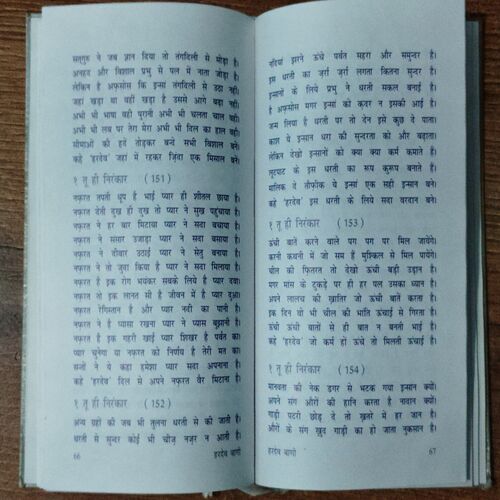 सत्गुरु ने जब ज्ञान दिया तो तंगदिली से मोड़ा है।
अनहद और विशाल प्रभु से पल में नाता जोड़ा है।
लेकिन है अफ़सोस कि इन्सां तंगदिली से उठा नहीं।
जहां खड़ा था वहीं खड़ा है उससे आगे बढ़ा नहीं।
अभी भी भाषा वही पुरानी अभी भी चलता चाल वही।
अभी भी लब पर तेरा मेरा अभी भी दिल का हाल वही।
सीमाओं की हदें तोड़कर बन्दे सभी विशाल बनें।
कहे 'हरदेव' जहां में रहकर ज़िंदा एक मिसाल बनें।
१ तू ही निरंकार (151)
नफ़रत तपती धूप है भाई प्यार ही शीतल छाया है।
नफ़रत देती दुख ही दुख तो प्यार ने सुख पहुंचाया है।
नफ़रत ने हर बार मिटाया प्यार ने सदा बचाया है।
नफ़रत ने संसार उजाड़ा प्यार ने सदा बसाया है।
नफ़रत ने दीवार उठाई प्यार ने सेतु बनाया है।
नफ़रत ने तो जुदा किया है प्यार ने सदा मिलाया है।
नफ़रत है इक रोग भयंकर सबके लिये है प्यार दवा।
नफ़रत तो इक लानत सी है जीवन में है प्यार दुआ।
नफ़रत रेगिस्तान है और प्यार नदी का पानी है।
नफ़रत ने है प्यासा रखना प्यार ने प्यास बुझानी है।
नफ़रत है इक गहरी खाई प्यार शिखर है पर्वत का।
प्यार चुनेगा या नफ़रत को निर्णय है तेरी मत का।
सन्तों ने ये कहा हमेशा प्यार सदा अपनाना है।
कहे 'हरदेव' दिल से अपने नफ़रत वैर मिटाना है।
१ तू ही निरंकार (152)
अन्य ग्रहों की जब भी तुलना धरती से की जाती है।
धरती से सुन्दर कोई भी चीज़ नज़र न आती है।
66 हरदेव बाणी
नदियां झरने ऊंचे पर्वत सहरा और समुन्दर है।
इस धरती का ज़र्रा ज़र्रा लगता कितना सुन्दर है।
इन्सानों के लिये प्रभु ने धरती सकल बनाई है।
है अफ़सोस मगर इन्सां को कुदर न इसकी आई है।
जन्म लिया है धरती पर तो देन इसे कुछ दे पाता।
काश ये इन्सान धरा की सुन्दरता को और बढ़ाता।
लेकिन देखो इन्सानों को क्या क्या कर्म कमाते हैं।
लूटपाट के इस धरती का रूप कुरूप बनाते हैं।
मालिक दे तौफ़ीक ये इन्सां एक सही इन्सान बने।
कहे 'हरदेव' इस धरती के लिये सदा वरदान बने।
१ तू ही निरंकार (153)
ऊंची बातें करने वाले पग पग पर मिल जायेंगे।
करनी कथनी में जो सम हैं मुश्किल से मिल पायेंगे।
चील की फ़ितरत तो देखो ऊंची बड़ी उड़ान है।
मगर मांस के टुकड़े पर ही हर पल उसका ध्यान है।
अपने लालच की ख़ातिर जो ऊंची बातें करता है।
इक दिन वो भी चील की भांति ऊंचाई से गिरता है।
ऊंची ऊंची बातों से ही बात न बनती भाई है।
कहे 'हरदेव' जो कर्म हों ऊंचे तो मिलती ऊंचाई है।
१ तू ही निरंकार (154)
मानवता की नेक डगर से भटक गया इन्सान क्यों।
अपने संग औरों की हानि करता है नादान क्यों।
गाड़ी पटरी छोड़ दे तो ख़तरे में हर जान है।
औरों के संग खुद गाड़ी का हो जाता नुकसान है।
हरदेव बाणी 67